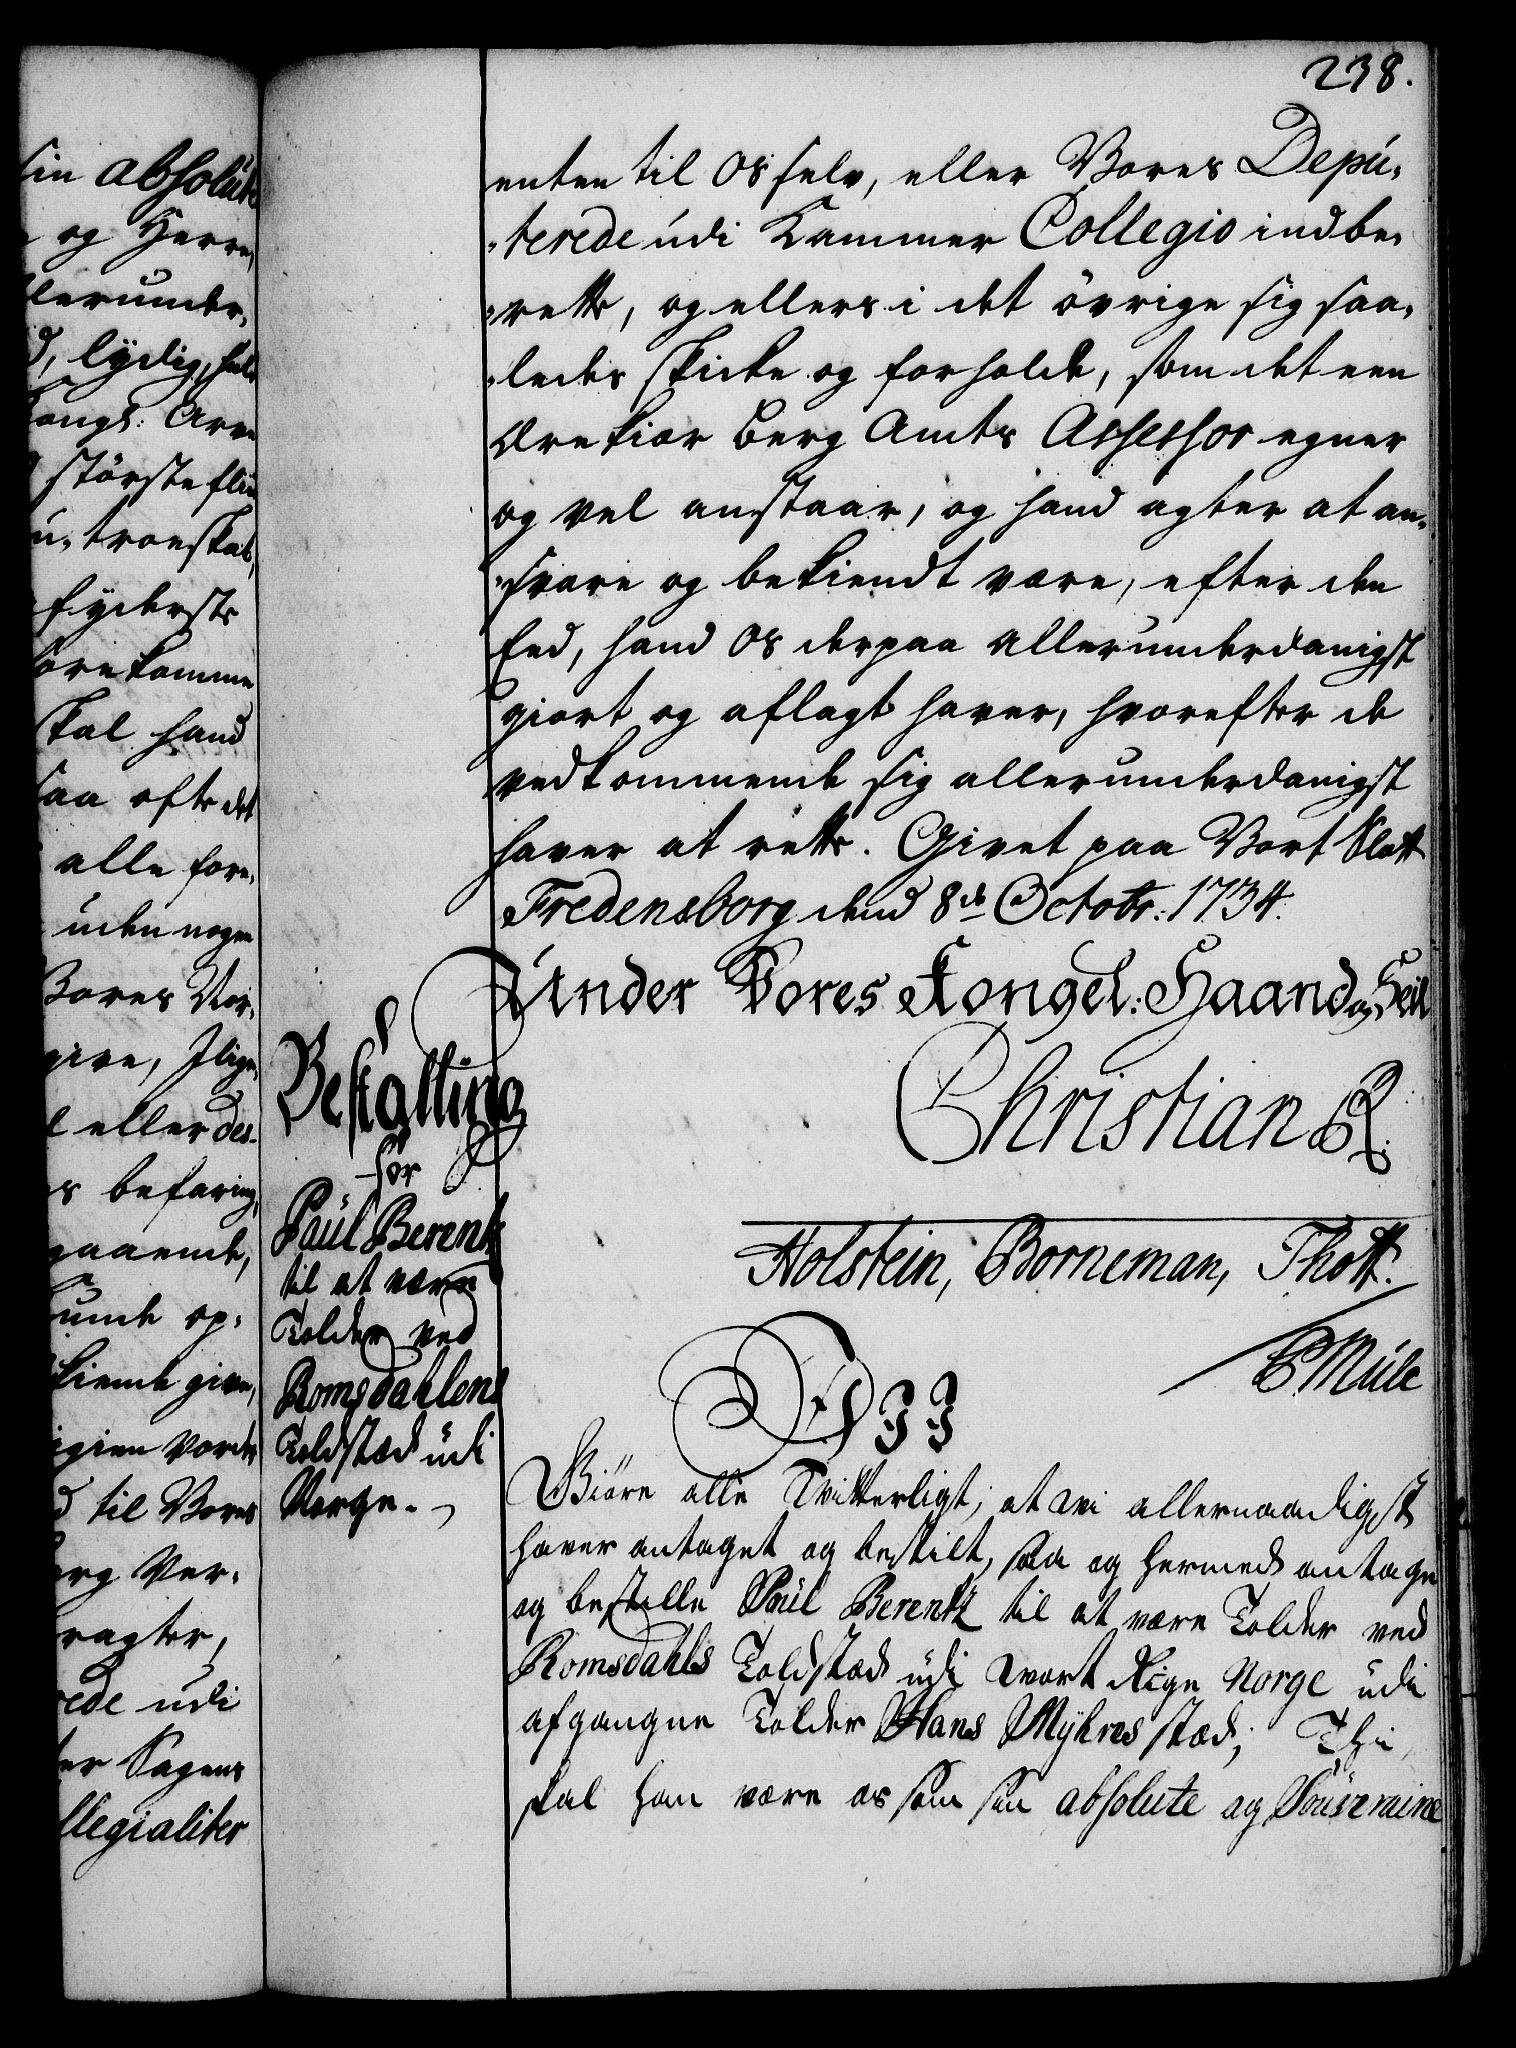 238.
sin absolute
og Herre,
llerunder-
d, lydig, huld
Kongl: Arve
største fliid
u-troeskab,
ÿderste
forekomme
skal hand
saa ofte det
alle fore-
uden nogen
Vores Vor-
give, Ilige-
l eller des-
s befaring,
gaaende,
op-
kiende give,
vorder
d til Vores
erg Ver-
ragter,
rede udi
ter Sagens
llegialiter
enten til Os selv, eller Vores Depú-
-terede údi Cammer Collegio indbe-
-rette, og ellers i det övrige sig saa-
-ledes skicke og forholde, som det een
ærekiær Berg Amts Assessor egner
og vel anstaar, og hand agter at an-
-svare og bekiendt være, efter den
Eed, hand Os derpaa allerunderdanigst
giort og aflagt haver, hvorefter de
vedkommende sig allerunderdanigst
haver at rette. Givet paa Vort Slott
Fredensborg dend 8de Octobr: 1734.
Under Vores Kongel: Haand og Seil
Christian R.
Holstein, Borneman, Thott.
/ E Múle
Bestalling
for
Paúl Berentz
til at være
Tolder ved
Romsdahlens
Toldsted údi
Norge.
Giöre alle Witterligt, at wi allernaadigst
haver antaget og bestilt, saa og hermed antage
og bestille Paúl Berentz til at være Tolder ved
Romsdahls Toldsted údi wort Rige Norge udi
afgangne Tolder Hans Mÿhres stæd; Thi
skal han være os som sin absolute og Soúveraine